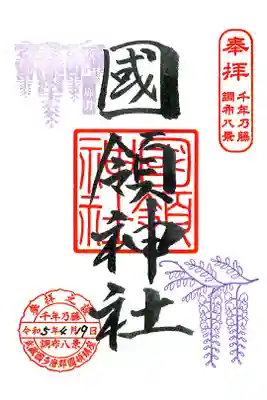 奉拝
千年乃藤
調布八景
國領神社
國領
神社
参拝之証
千年乃藤
令和5年4月19日
調布八景